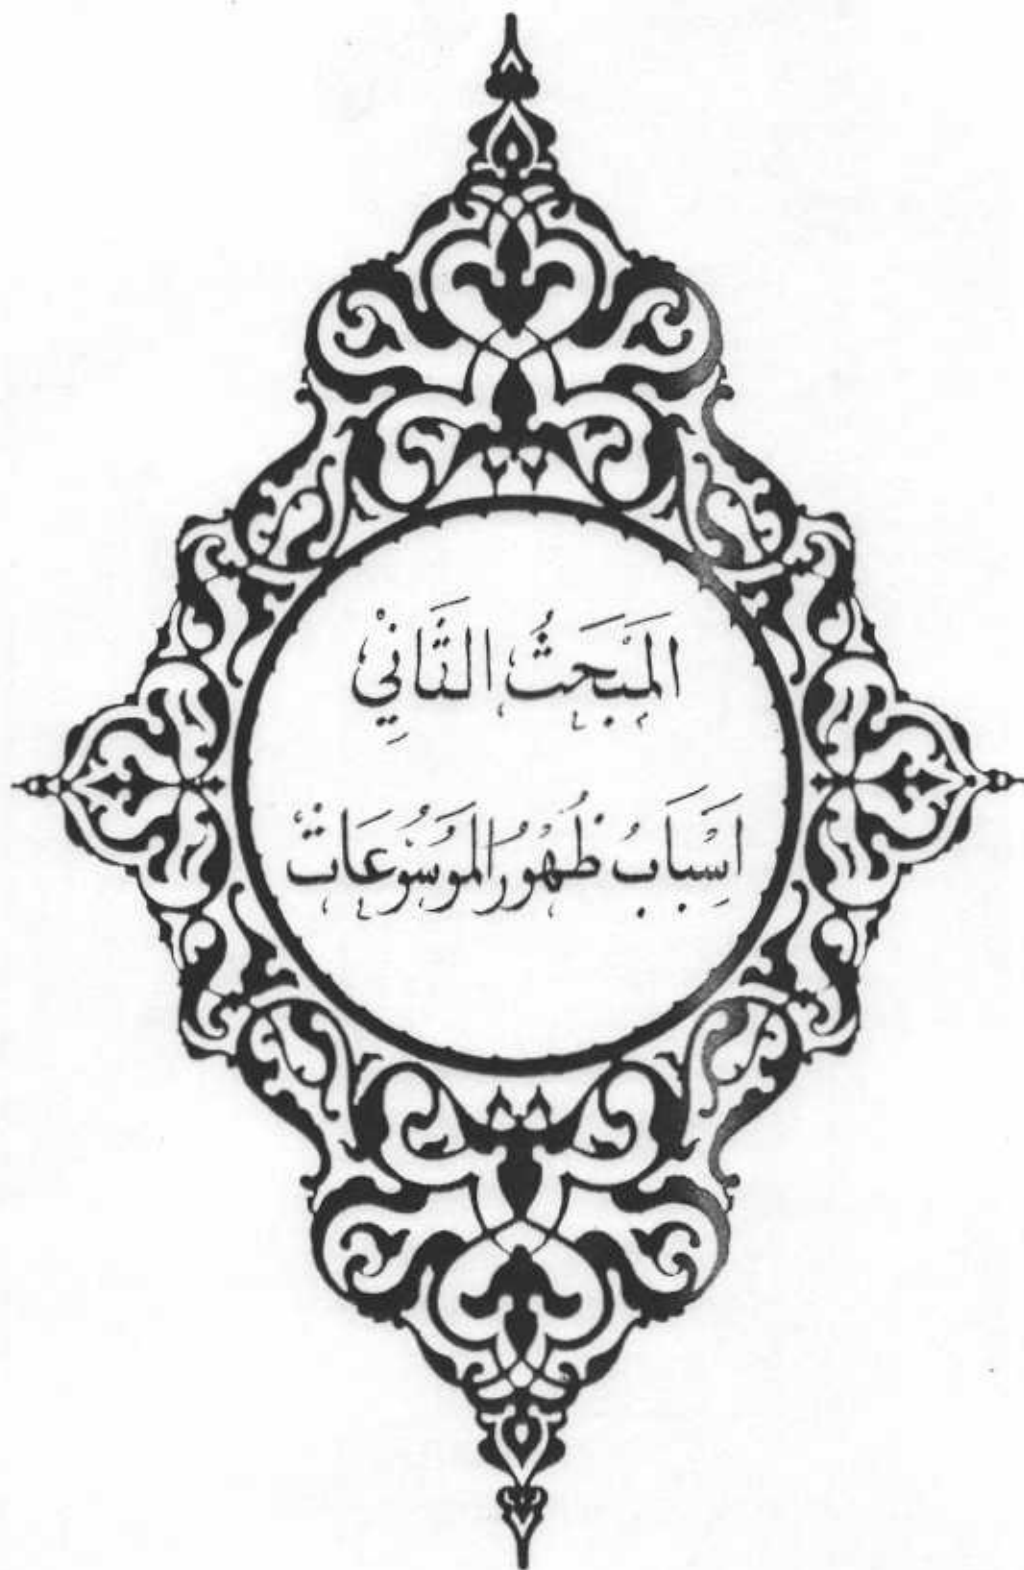 المَبْحَثُ الثَّانِيْ
اَسْبَابُ ظُهُوْرُ المَوْسُوْعَاتْ